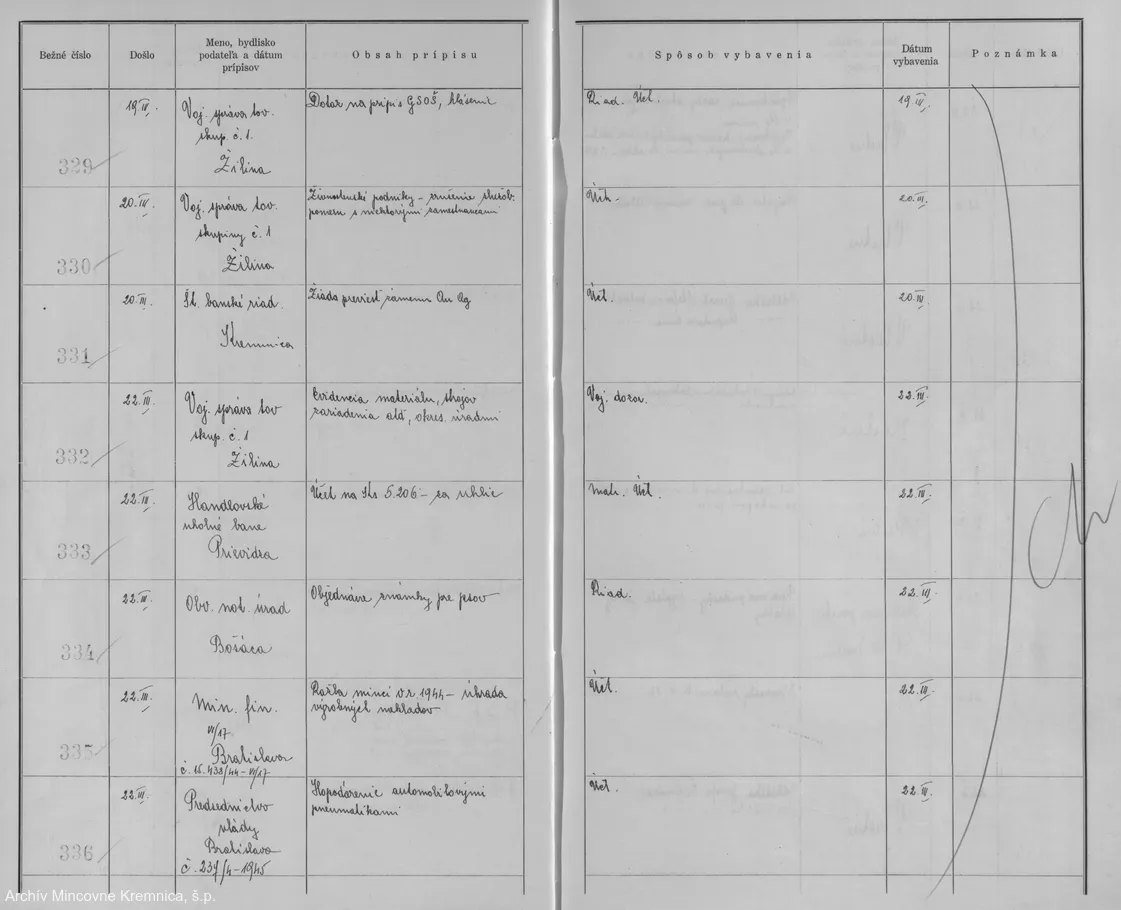 Bežné číslo
Došlo
Meno, bydlisko
podateľa a dátum
prípisov
Obsah prípisu
Spôsob vybavenia
Dátum
vybavenia
Poznámka
329
19 III.
Voj. správa tov.
skup. č. 1.
Žilina
Dotaz na prípis GSOŠ, hlásenie
Riad. Úct.
19 III.
330
20. III.
Voj. správa tov.
skupiny č. 1
Žilina
Živnostenské podniky – zrušenie služob.
pomeru s niektorými zamestnancami
Úth.
20. III.
331
20. III.
Št. banské riad.
Kremnica
Žiada previesť zámenu Au Ag
Úct.
20. III.
332
22. III.
Voj. správa tov
skup. č. 1
Žilina
Evidencia materiálu, strojov
zariadenia atď, okres. úradmi
Voj. dozor.
22. III.
333
22. III.
Handlovské
uholné bane
Prievidza
Účet na Ks 5.206 – za uhlie
mat. Úct.
22. III.
334
22. III.
Obv. not. úrad
Bošáca
Objednáva známky pre psov
Riad.
22. III.
335
22. III.
Min. fin.
VI/17
Bratislava
č. 16.438/44 – VI/17
Razba mincí v r. 1944 – úhrada
výrobných nákladov
Úct.
22. III.
336
22. III.
Predsedníctvo
vlády
Bratislava
č. 237/4 – 1945
Hospodárenie automobilovými
pneumatikami
Úct.
22. III.
Archív Mincovne Kremnica, š.p.